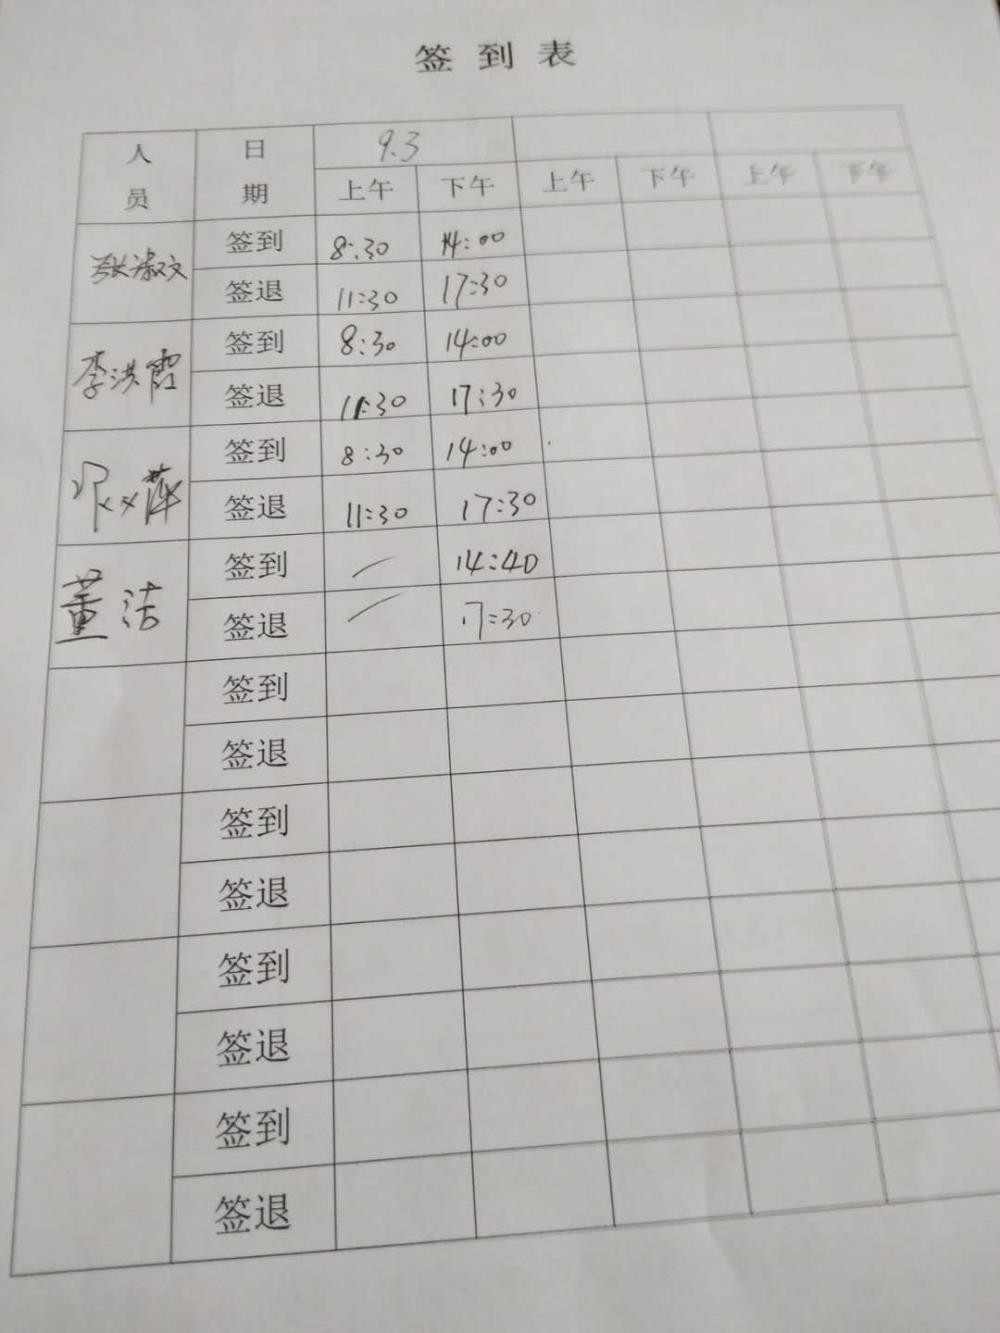 签到表
人员 日期 9.3
上午 下午 上午 下午 上午 下午
张淑文 签到 8:30 14:00
签退 11:30 17:30
李洪霞 签到 8:30 14:00
签退 11:30 17:30
签到 8:30 14:00
签退 11:30 17:30
董洁 签到 / 14:40
签退 / 17:30
签到
签退
签到
签退
签到
签退
签到
签退